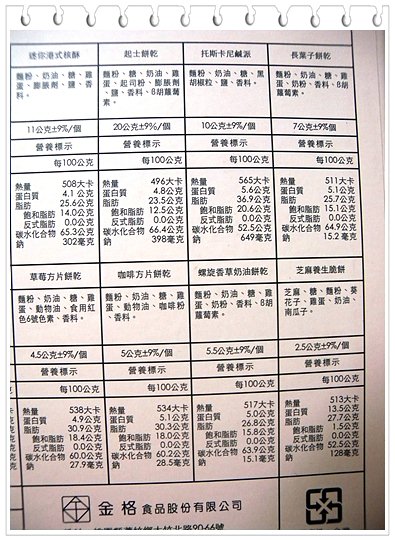 迷你港式核酥
麵粉、奶油、糖、雞
蛋、膨脹劑、鹽、香
料。
11公克±9%/個
營養標示
每100公克
熱量 508大卡
蛋白質 4.1 公克
脂肪 25.6公克
飽和脂肪 14.0公克
反式脂肪 0.0公克
碳水化合物 65.3公克
鈉 302毫克
起士餅乾
麵粉、糖、奶油、雞
蛋、起司粉、膨脹劑
、鹽、香料、ß胡
蘿蔔素。
20公克±9%/個
營養標示
每100公克
熱量 496大卡
蛋白質 4.8公克
脂肪 23.5公克
飽和脂肪 12.5公克
反式脂肪 0.0公克
碳水化合物 66.4公克
鈉 398毫克
托斯卡尼鹹派
麵粉、奶油、糖、黑
胡椒粒、鹽、香料。
10公克±9%/個
營養標示
每100公克
熱量 565大卡
蛋白質 5.6公克
脂肪 36.9公克
飽和脂肪 20.6公克
反式脂肪 0.0公克
碳水化合物 52.5公克
鈉 649毫克
長葉子餅乾
麵粉、糖、奶油、雞
蛋、奶粉、香料、ß胡
蘿蔔素。
7公克±9%個
營養標示
每100公克
熱量 511大卡
蛋白質 5.1公克
脂肪 25.7公克
飽和脂肪 15.1公克
反式脂肪 0.0公克
碳水化合物 64.9公克
鈉 15.2 毫克
草莓方片餅乾
麵粉、奶油、糖、雞
蛋、動物油、食用紅
色6號色素、香料。
4.5公克±9%/個
營養標示
每100公克
熱量 538大卡
蛋白質 4.9公克
脂肪 30.9公克
飽和脂肪 18.4公克
反式脂肪 0.0公克
碳水化合物 60.0公克
鈉 27.9毫克
咖啡方片餅乾
麵粉、奶油、糖、雞
蛋、動物油、咖啡粉
、香料。
5公克±9%/個
營養標示
每100公克
熱量 534大卡
蛋白質 5.1公克
脂肪 30.3公克
飽和脂肪 18.0公克
反式脂肪 0.0公克
碳水化合物 60.2公克
鈉 28.5毫克
螺旋香草奶油餅乾
麵粉、奶油、糖、雞
蛋、奶粉、香料、ß胡
蘿蔔素。
5.5公克±9%/個
營養標示
每100公克
熱量 517大卡
蛋白質 5.0公克
脂肪 26.8公克
飽和脂肪 15.8公克
反式脂肪 0.0公克
碳水化合物 63.9公克
鈉 15.1毫克
芝麻養生脆餅
芝麻、糖、麵粉、葵
花子、雞蛋、奶油、
南瓜子。
2.5公克±9%/個
營養標示
每100公克
熱量 513大卡
蛋白質 13.5公克
脂肪 27.7公克
飽和脂肪 1.5公克
反式脂肪 0.0公克
碳水化合物 52.5公克
鈉 128毫克
金格食品股份有限公司